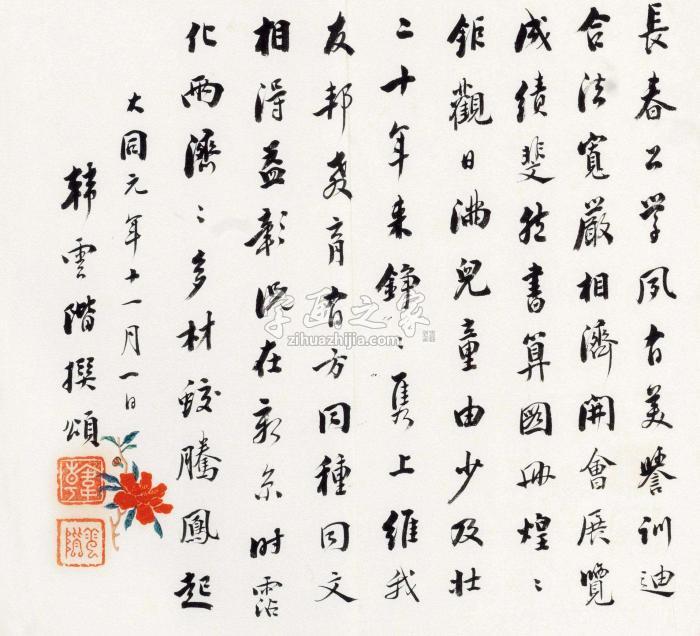 長春公學夙有美譽訓迪
合法寬嚴相濟開會展覽
成績斐然書算圖冊煌〻
鉅觀日滿兒童由少及壯
二十年来錚〻雋上維我
友邦教育有方同種同文
相得益彰況在新京時霑
化雨濟〻多材蛟騰鳳起
大同元年十一月一日
韓雲階撰頌
字画之家
zihuazhijia.com